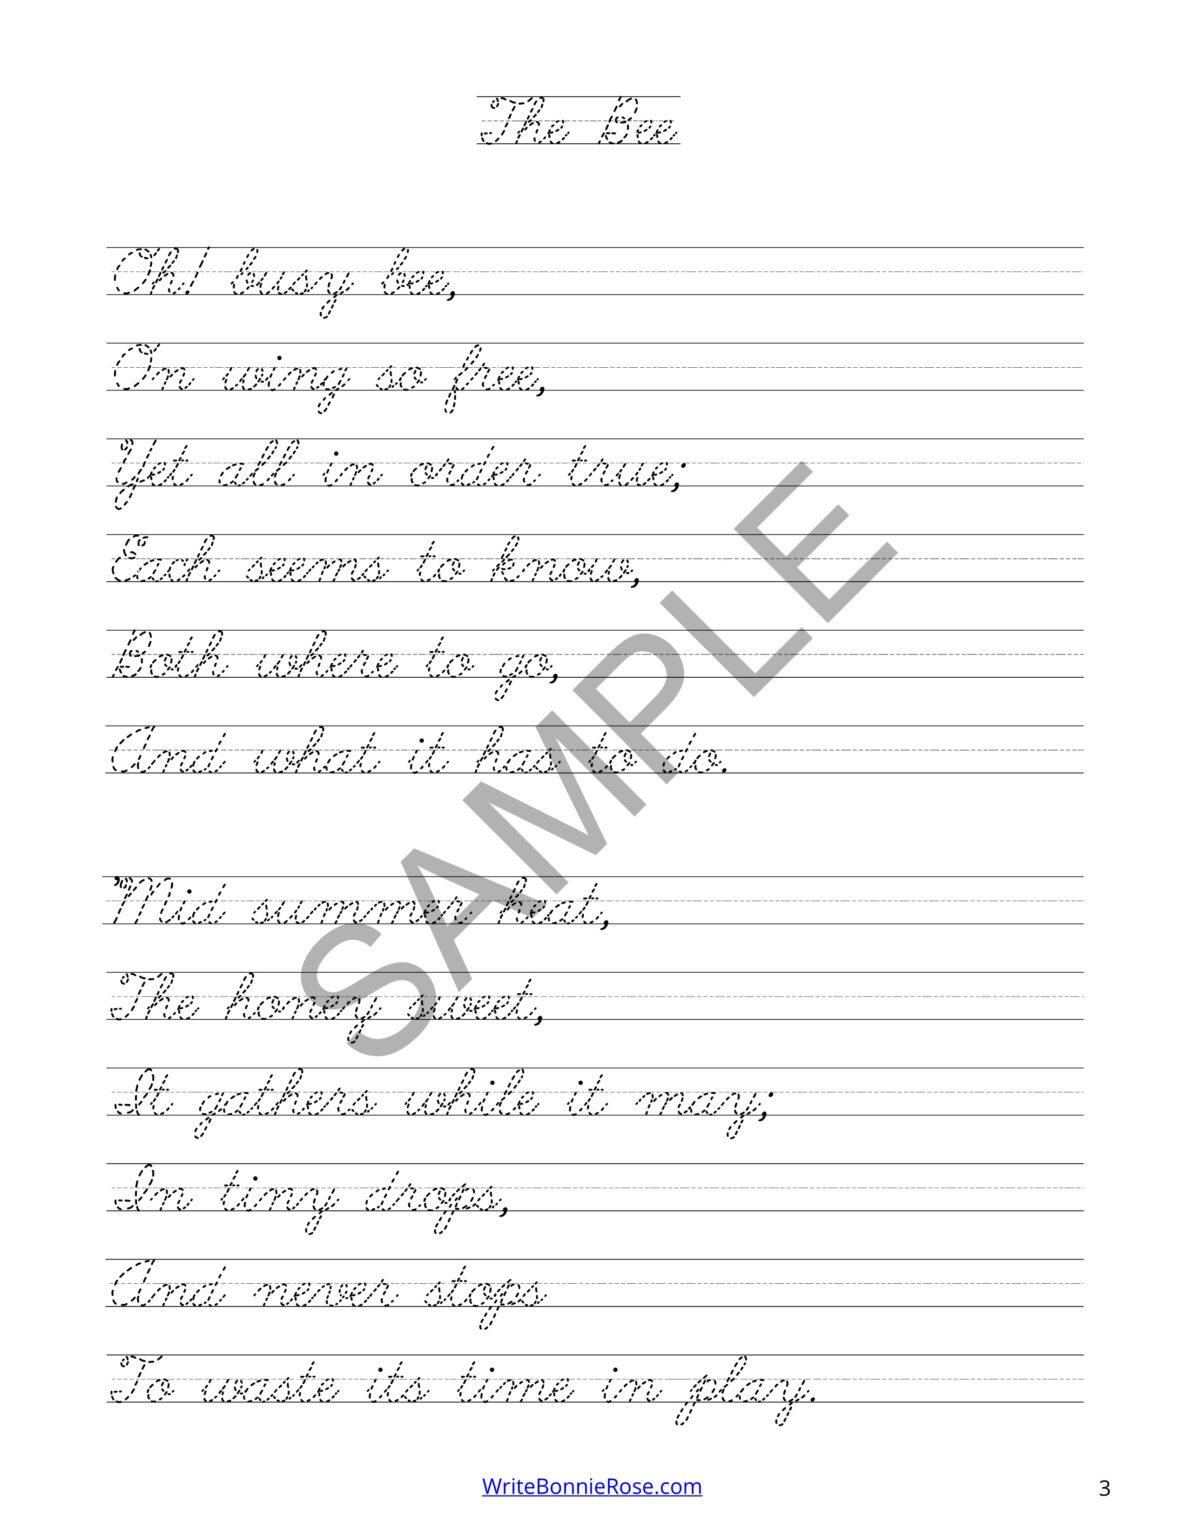 The Bee
Oh! busy bee,
On wing so free,
Yet all in order true;
Each seems to know,
Both where to go,
And what it has to do.
'Mid summer heat,
The honey sweet,
It gathers while it may;
In tiny drops,
And never stops
To waste its time in play.
SAMPLE
WriteBonnieRose.com
3